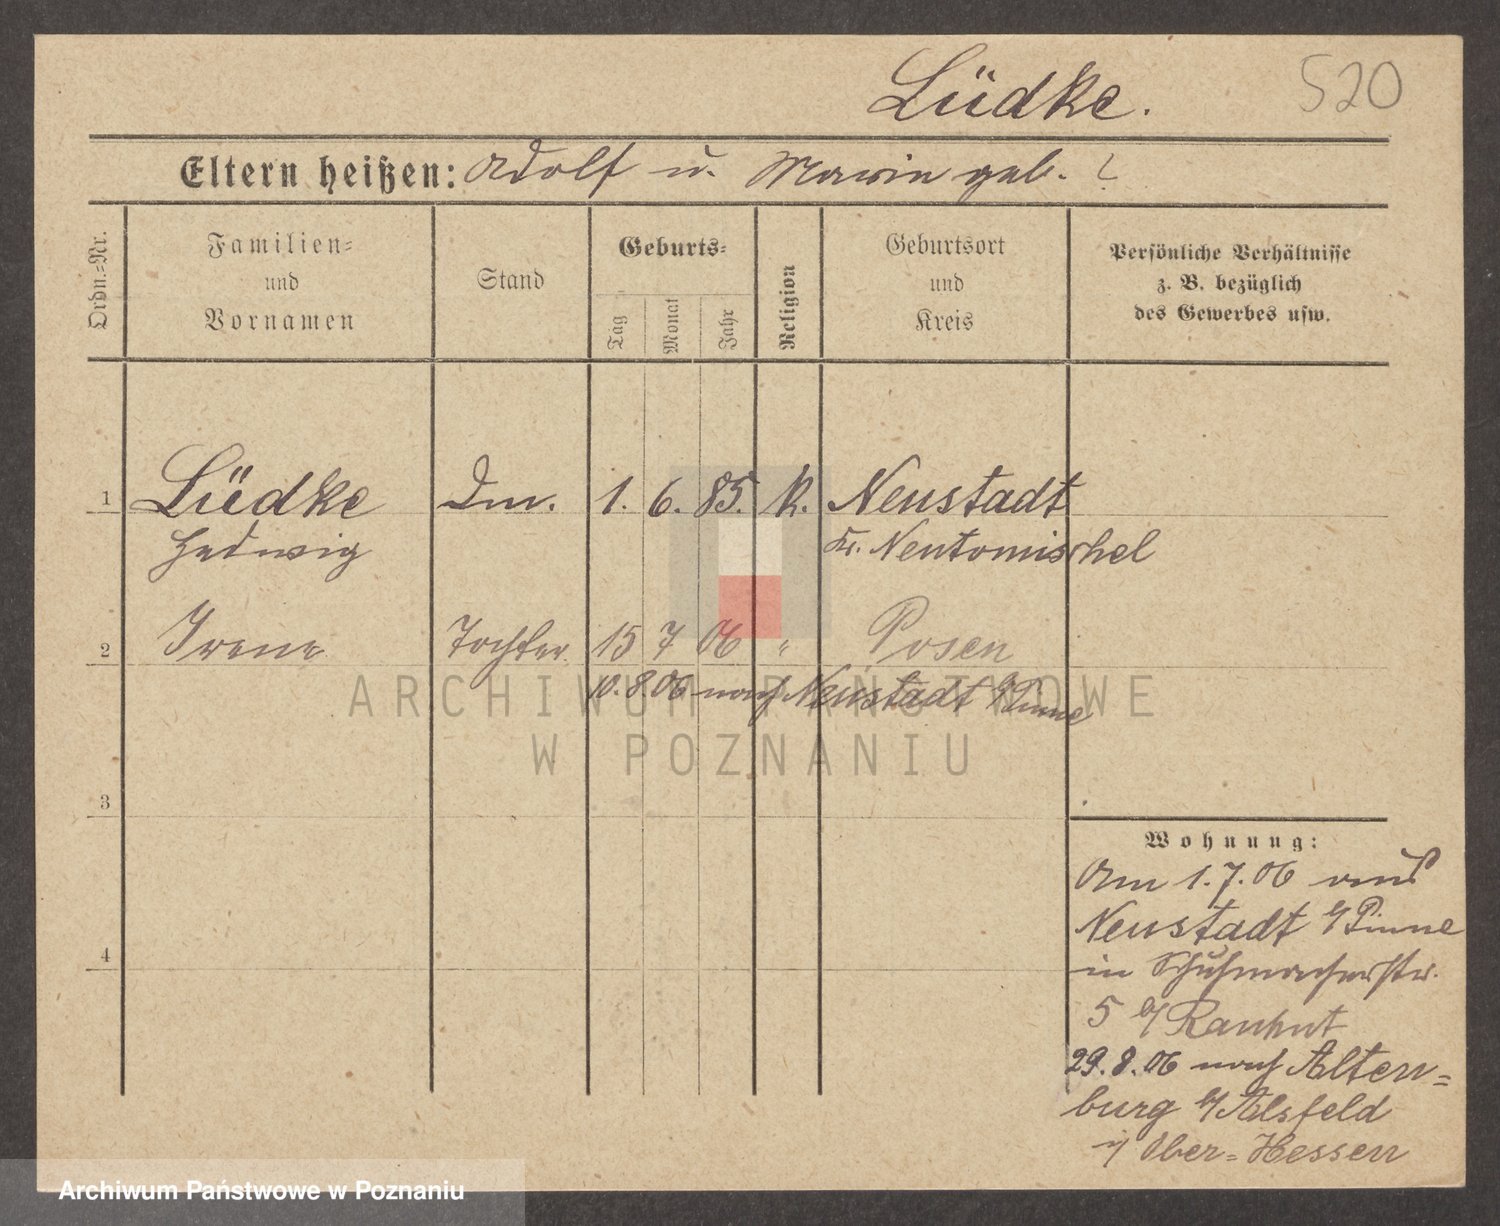 Lüdke. 520
Eltern heißen: Adolf u. Marie geb. ?
Ordn.=Nr.
Familien=
und
Vornamen
Stand
Geburts=
Tag Monat Jahr
Religion
Geburtsort
und
Kreis
Persönliche Verhältnisse
z. B. bezüglich
des Gewerbes usw.
1 Lüdke Dm. 1. 6. 85. k. Neustadt
Hedwig Kr. Neutomischel
2 Irene Tochter 15 7 06 " Posen
10. 8. 06 nach Neustadt b/Pinne
3
4
Wohnung:
Am 1. 7. 06 aus
Neustadt b/Pinne
in Schuhmacherstr.
5 b/ Rauhut
29. 8. 06 nach Alten=
burg b/ Alsfeld
i/ Ober=Hessen
ARCHIWUM PAŃSTWOWE
W POZNANIU
Archiwum Państwowe w Poznaniu